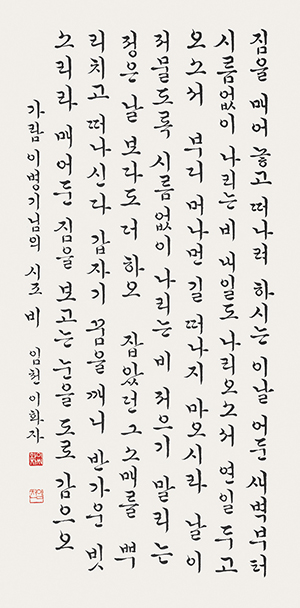 짐을 매어 놓고 떠나려 하시는 이날 어둔 새벽부터
시름없이 나리는 비 내일도 나리오소서 연일 두고
오소서 부디 머나먼 길 떠나지 마오시라 날이
저물도록 시름없이 나리는 비 저으기 말리는
정은 날보다도 더하오 잡았던 그 소매를 뿌
리치고 떠나신다 갑자기 꿈을 깨니 반가운 빗
소리라 매어둔 짐을 보고는 눈을 도로 감으오
가람 이병기님의 시조 비 임천 이화자